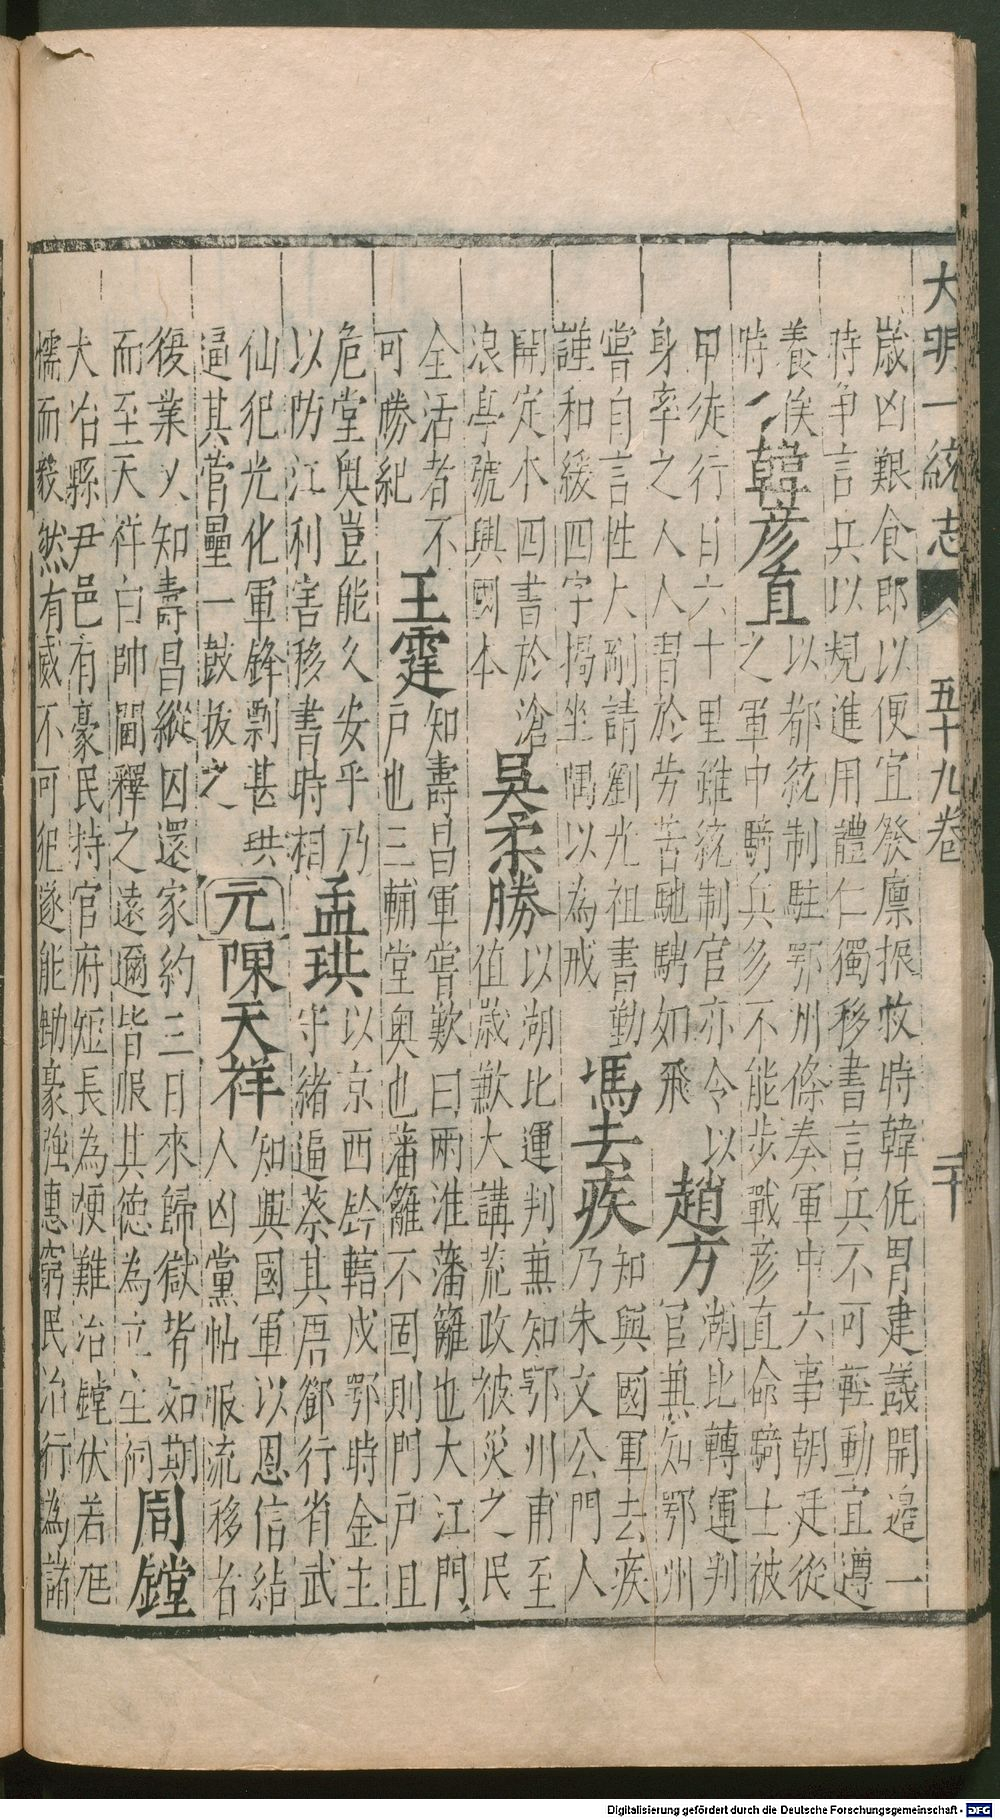 大明一統志 五十九卷 二十
歲凶艱食郎以便宜發廩振救時韓侂胄建議開邉一
時争言兵以規進用禮仁獨移書言兵不可輕動宜遵
養俟
時
韓彦直
以都統制駐鄂州條奏軍中六事朝廷從
之軍中騎兵多不能步戰彦直命騎士被
甲徒行日六十里雖統制官亦令以
身率之人人胃於劳苦馳騁如飛
趙方
湖北轉運判
官兼知鄂州
嘗自言性大剛請劉光祖書勤
謹和緩四字揭坐隅以為戒
馮去疾
知興國軍去疾
乃朱文公門人
開定本四書於滄
浪亭號興國本
吳柔勝
以湖比運判兼知鄂州甫至
值歲歉大講荒政被災之民
全活者不
可勝紀
王霆
知壽昌軍嘗歎曰兩淮藩籬也大江門
户也三輔堂奥也藩籬不固則門户且
危堂奥豈能久安乎乃
以防江利害移書時相
孟珙
以京西鈐轄戍鄂時金主
守緒逼蔡其唐鄧行省武
仙犯光化軍鋒剽甚珙
逼其營壘一鼓拔之
元
陳天祥
知興國軍以恩信結
人凶黨帖服流移者
復業以知壽昌縱囚還家約三日來歸獄皆如期
而至天祥白帥閫釋之遠邇皆服其德為立生祠
周鏜
大冶縣尹邑有豪民持官府短長為梗難治鏜伏若尫
懦而毅然有威不可犯遂能鋤豪強惠窮民治行為諸
Digitalisierung gefördert durch die Deutsche Forschungsgemeinschaft - DFG